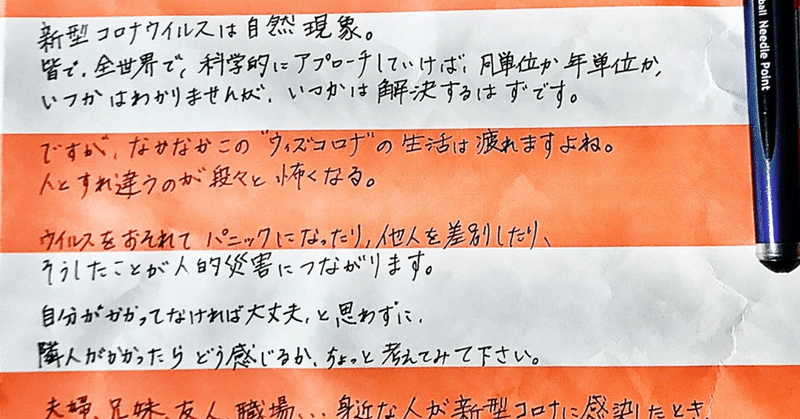 新型コロナウイルスは自然現象。
皆で、全世界で、科学的にアプローチしていけば、月単位か年単位か、
いつかはわかりませんが、いつかは解決するはずです。
ですが、なかなかこの"ウィズコロナ"の生活は疲れますよね。
人とすれ違うのが段々と怖くなる。
ウイルスをおそれてパニックになったり、他人を差別したり、
そうしたことが人的災害につながります。
自分がかかってなければ大丈夫、と思わずに、
隣人がかかったらどう感じるか、ちょっと考えてみて下さい。
夫婦、兄妹、友人、職場... 身近な人が新型コロナに感染したとき、
ball Needle Point